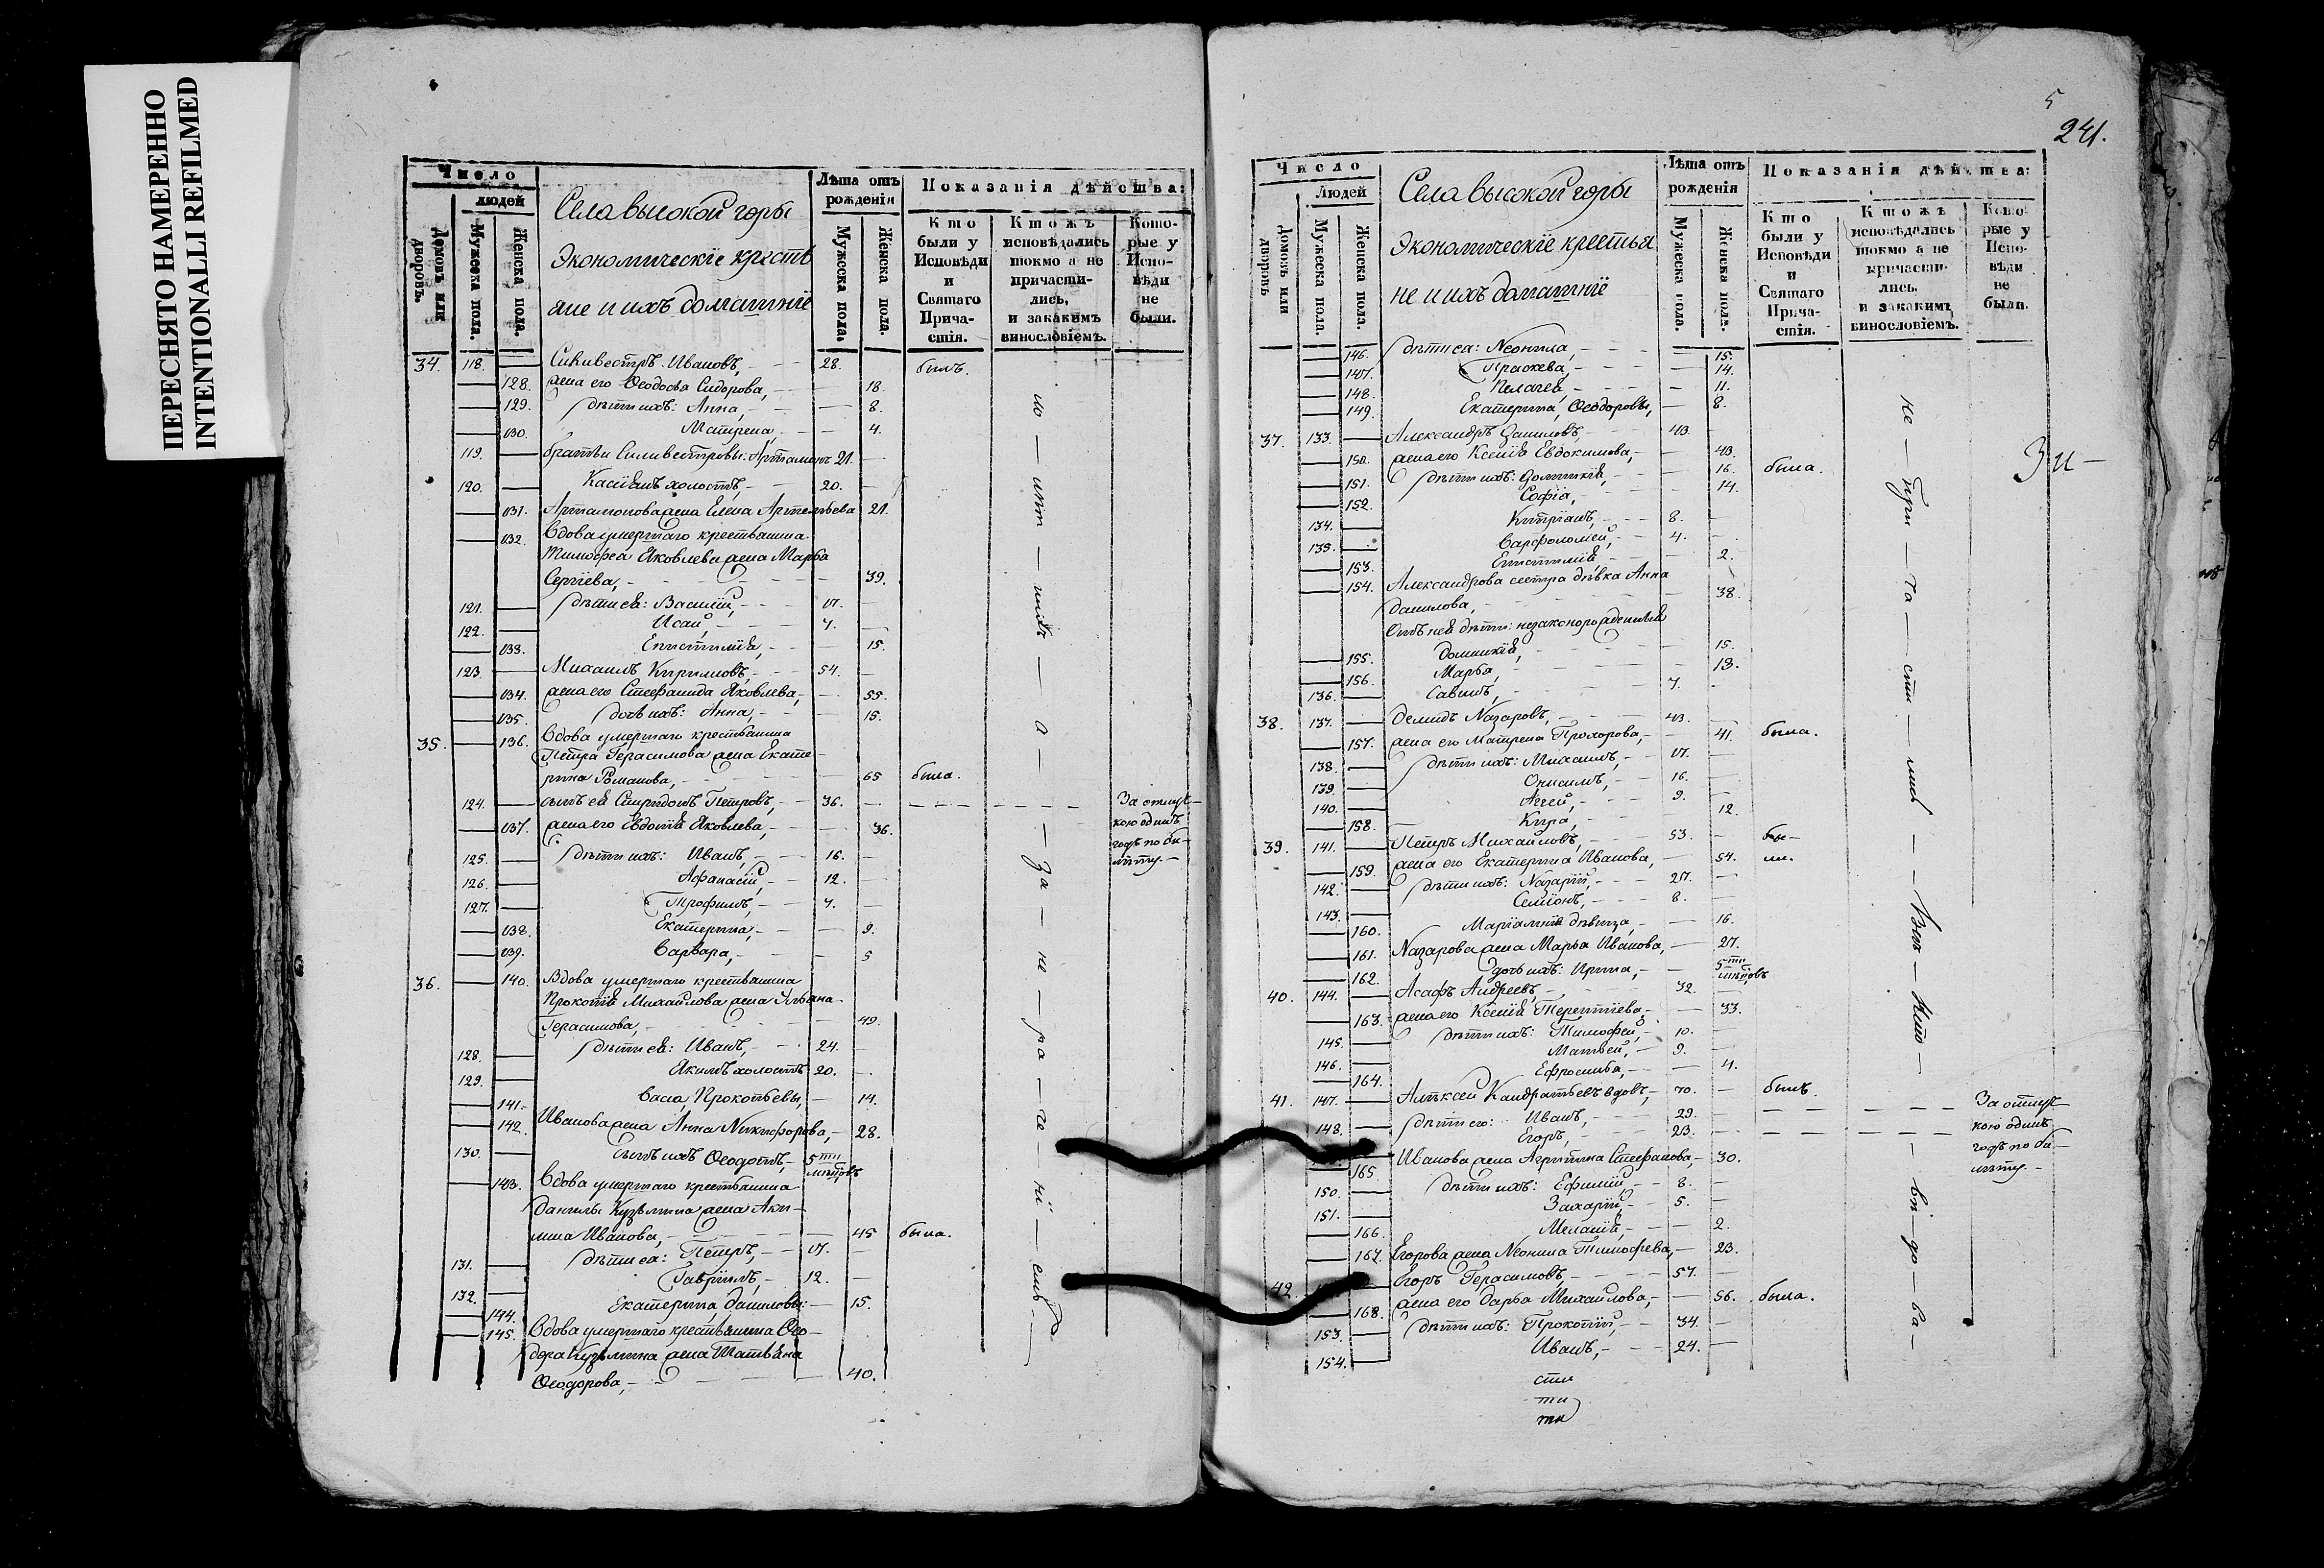 ПЕРЕСНЯТО НАМЕРЕННО
INTENTIONALLI REFILMED
Число
людей
Домовъ или дворовъ.
Мужеска пола.
Женска пола.
Села высокой горы
Экономическїе кресть
яне и ихъ домашнїе
Лѣта отъ рожденїя
Мужеска пола.
Женска пола.
Показанїя дѣйства:
Кто были у Исповѣди и Святаго Прича-стїя.
Ктожъ исповѣдались токмо а не причасти-лись, и закакимъ винословїемъ.
Кото-рые у Испо-вѣди не были.
34. 118. Силивестръ Ивановъ, 28. былъ.
128. жена его Ѳеодосья Сидорова, 18.
129. дѣти ихъ: Анна, 8.
130. Матрена, 4.
119. братьи Силивестровы: Артамонъ 21.
120. Касїянъ холостъ, 20.
131. Артамонова жена Елена Артемьева 21.
132. Вдова умершаго крестьянина
Тимофея Яковлева жена Марѳа
Сергїева, 39.
121. дѣти ея: Василїй, 17.
122. Исай, 7.
133. Епистимїя, 15.
123. Михаилъ Кириловъ, 54.
134. жена его Стефанида Яковлева, 55.
135. дочь ихъ: Анна, 15.
35. 136. Вдова умершаго крестьянина
Петра Герасимова жена Екате
рина Романова, 65 была.
124. сынъ ея Спиридонъ Петровъ, 36. За отлуч-
137. жена его Евдокїя Яковлева, 36. кою одинъ
годъ по би-
125. дѣти ихъ: Иванъ, 16. лету.
126. Афанасїй, 12.
127. Трофимъ, 7.
138. Екатерина, 9.
139. Варвара, 5
36. 140. Вдова умершаго крестьянина
Прокопїя Михайлова жена Ульяна
Герасимова, 49.
128. дѣти ея: Иванъ, 24.
129. Якимъ холостъ 20.
141. Васса, Прокопьевы, 14.
142. Иванова жена Анна Никифорова, 28.
130. сынъ ихъ Ѳеодотъ, 5 ти мѣсяцовъ
143. Вдова умершаго крестьянина
Данилы Кузьмина жена Аки-
лина Иванова, 45 была.
131. дѣти ея: Петръ, 17.
132. Гаврїилъ, 12.
144. Екатерина Даниловы: 15.
145. Вдова умершаго крестьянина Ѳео-
дора Кузьмина жена Татьяна
Ѳеодорова, 40.
а — за — не — ра — че — нї — емъ
5
241.
Число
Людей
Домовъ или дворовъ
Мужеска пола.
Женска пола.
Села высокой горы
Экономическїе крестья
не и ихъ домашнїе
Лѣта отъ рожденїя
Мужеска пола.
Женска пола.
Показанїя дѣйства:
Кто были у Исповѣди и Святаго Прича-стїя.
Ктожъ исповѣдались токмо а не причасти-лись, и закакимъ винословїемъ.
Кото-рые у Испо-вѣди не были.
146. дѣти ея: Неонила, 15.
147. Праскева, 14.
148. Пелагея, 11.
149. Екатерина, Ѳеодоровы, 8.
37. 133. Александръ Даниловъ, 43.
150. жена его Ксенїя Евдокимова, 43.
151. дѣти ихъ: Домникїя, 16. была.
152. Софїя, 14.
134. Кипрїанъ, 8.
135. Варфоломей, 4.
153. Епистимїя 2.
154. Александрова сестра дѣвка Анна
Данилова, 38.
Отъ нея дѣти: незаконорожденныя
155. Домникїя, 15.
156. Марѳа, 13.
136. Савинъ, 7.
38. 137. Демидъ Назаровъ, 43.
157. жена его Матрена Прохорова, 41. была.
138. дѣти ихъ: Михаилъ, 17.
139. Онисимъ, 16.
140. Агей, 9.
158. Кира, 12.
39. 141. Петръ Михайловъ, 53. бы-
159. жена его Екатерина Иванова, 54. ли.
142. дѣти ихъ: Назарїй, 27.
143. Семїонъ, 8.
160. Марїамнїя дѣвица, 16.
161. Назарова жена Марья Иванова, 27.
162. дочь ихъ: Ирина, 5 ти мѣсяцовъ
40. 144. Асафъ Андреевъ, 32.
163. жена его Ксенїя Терентїева, 33.
145. дѣти ихъ: Тимофей, 10.
146. Матвей, 9.
164. Ефросинья, 4.
41. 147. Алѣксей Кандратьевъ вдовъ, 70. былъ.
148. дѣти его: Иванъ, 29. За отлуч-
Егоръ, 23. кою одинъ
165. Иванова жена Агрипина Стефанова, 30. годъ по би-
150. дѣти ихъ: Ефимїй 8. лету.
151. Захарїй, 5.
166. Меланїя, 2.
167. Егорова жена Неонила Тимофеева, 23.
42. Егоръ Герасимовъ, 57.
168. жена его Дарья Михайлова, 56. была.
153. дѣти ихъ: Прокопїй, 34.
154. Иванъ, 24.
не — при — ча — сти — лись